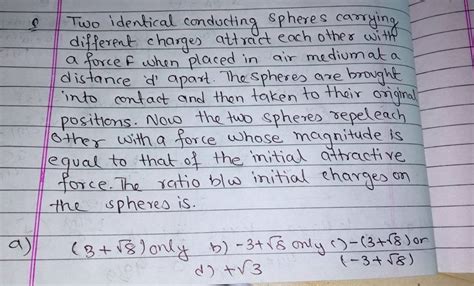 Q Two identical conducting spheres carrying
different charges attract each other with
a force F when placed in air medium at a
distance 'd' apart. The spheres are brought
into contact and then taken to their original
positions. Now the two spheres repel each
other with a force whose magnitude is
equal to that of the initial attractive
force. The ratio b/w initial charges on
the spheres is.
a) (3+√8) only b) -3+√8 only c) -(3+√8) or
(-3+√8)
d) +√3